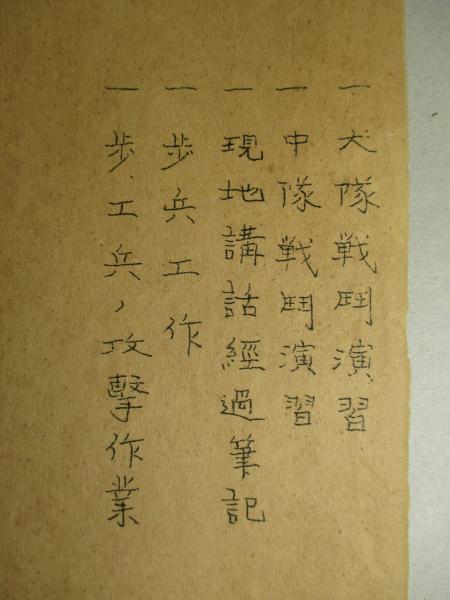 一 大隊戦鬥演習
一 中隊戦鬥演習
一 現地講話經過筆記
一 歩兵工作
一 歩、工兵ノ攻撃作業